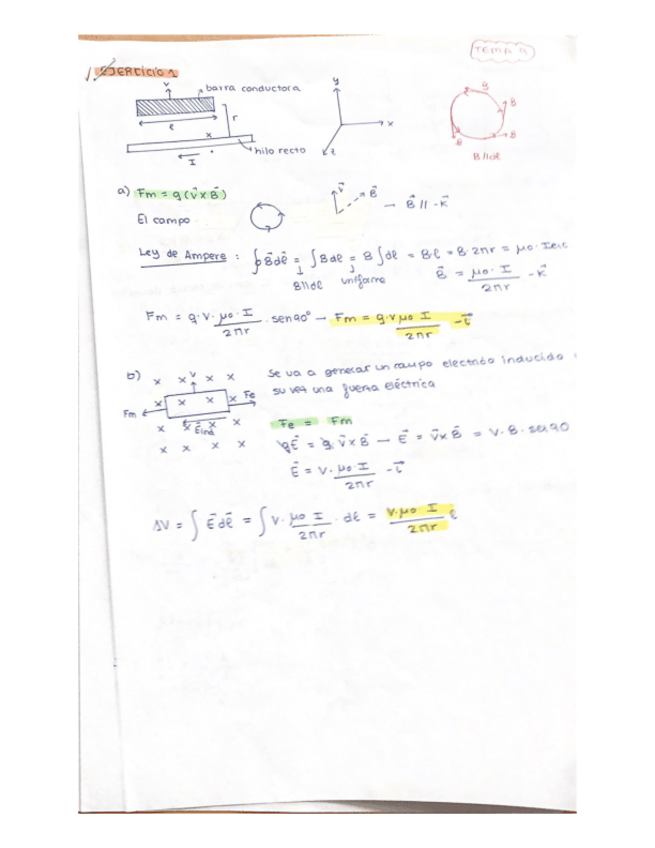 TEMA 9
EJERCICIO 1
v
barra conductora
l
r
x
hilo recto
I
y
x
z
B
B
B
B
B//dl
a) Fm = q (v⃗ x B⃗)
El campo
v⃗
B⃗
→ B⃗ // -K⃗
Ley de Ampere : ∮ B⃗dl⃗ = ∫ Bdl = B ∫ dl = B·l = B·2πr = μ0·I
B//dl uniforme
B⃗ = μ0·I / 2πr -K⃗
Fm = q·v· μ0·I / 2πr · sen90° → Fm = q·v μ0 I / 2πr -i⃗
b) x x x x
v
Se va a generar un campo electrico inducido
su vez una fuerza eléctrica
x x x Fe
Fm
x x x Eind
x x x x
Fe = Fm
qE⃗ = q·v⃗ x B⃗ → E⃗ = v⃗ x B⃗ = v·B·sen90
E⃗ = v· μ0·I / 2πr -i⃗
ΔV = ∫ E⃗dl⃗ = ∫ v· μ0 I / 2πr · dl = v·μ0 I / 2πr l